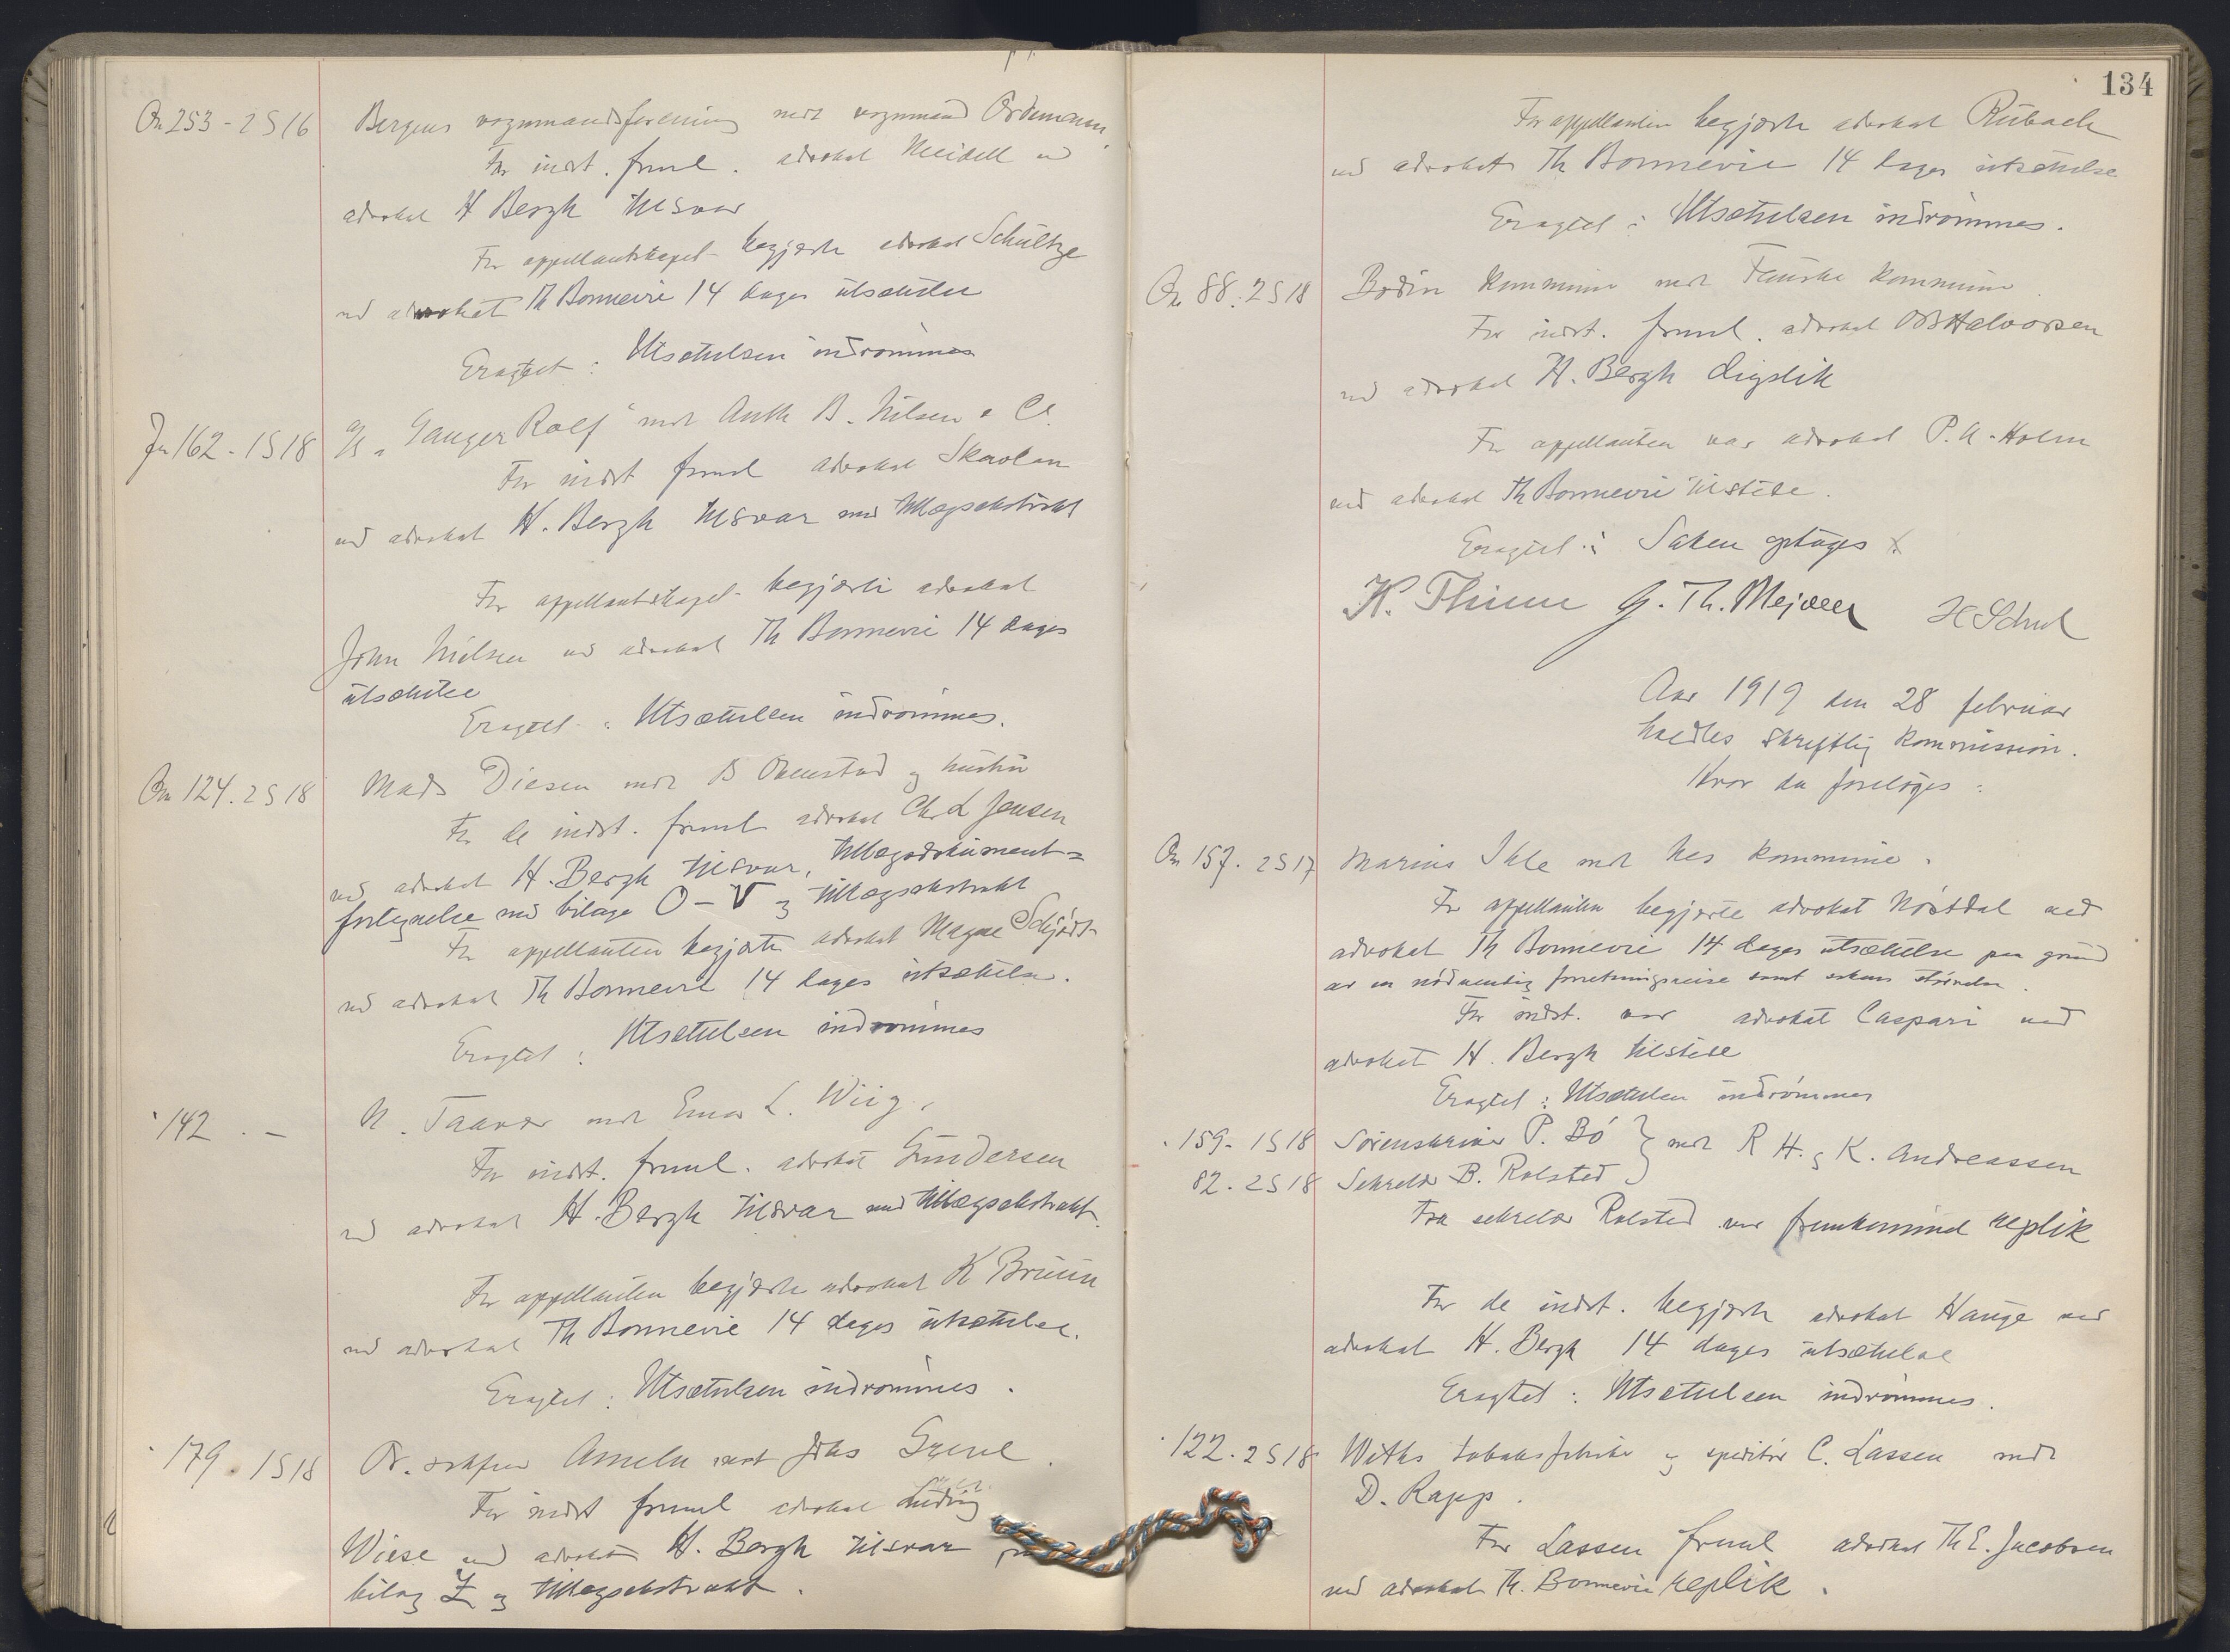 On 253 - 2 S 16 Bergens vognmandsforening mot vognmand Ordemann.
For indst. freml. advokat Meidell ved
advokat H Bergh tilsvar
For appellantskapet begjærte advokat Schultze
ved advokat Th Bonnevie 14 dages utsættelse
Eragtet: Utsættelsen indrømmes
Fr 162 - 1 S 18 A/S "Ganger Rolf" mot Anth B. Nilsen & Co.
For indst freml advokat Skavlan
ved advokat H. Bergh tilsvar med tillægsekstrakt
For appellantskapet begjærte advokat
John Nielsen ved advokat Th Bonnevie 14 dages
utsættelse
Eragtet: Utsættelsen indrømmes.
On 124. 2 S 18 Mads Diesen mot B Openstad og hustru
For de indst. freml advokat Chr L Jensen
ved advokat H. Bergh tilsvar, tillægsdokument=
fortegnelse med bilage O - V og tillægsekstrakt
For appellanten begjærte advokat Magne Schjødt
ved advokat Th Bonnevie 14 dages utsættelse.
Eragtet: Utsættelsen indrømmes
" 142 . - N. Taarer mot Einar L. Wiig.
For indst. freml. advokat Gundersen
ved advokat H. Bergh tilsvar med tillægsekstrakt.
For appellanten begjærte advokat K Bruun
ved advokat Th Bonnevie 14 dages utsættelse.
Eragtet: Utsættelsen indrømmes.
" 179. 1 S 18 Or. sakfører Ameln mot Johs
For indst freml advokat Ludvig
Wiese ved advokat H. Bergh tilsvar
bilag Z og tillægsekstrakt.
134
For appellanten begjærte advokat Rubach
ved advokat Th Bonnevie 14 dages utsættelse
Eragtet: Utsættelsen indrømmes.
On 88. 2 S 18 Bodin kommune mot Fauske kommune
For indst. freml. advokat O B Halvorsen
ved advokat H. Bergh duplik
For appellanten var advokat P. A. Holm
ved advokat Th Bonnevie tilstede.
Eragtet: Saken optages
K. Thinn G. Th. Mejdell
Aar 1919 den 28 februar
holdtes skriftlig kommission.
Hvor da foretoges:
On 157. 2 S 17 Marius Ihle mot Nes kommune.
For appellanten begjærte advokat Nøstdal ved
advokat Th Bonnevie 14 dages utsættelse paa grund
av en nødvendig forretningsreise samt sakens størrelse.
For indst. var advokat Caspari ved
advokat H. Bergh tilstede
Eragtet: Utsættelsen indrømmes
" 159 - 1 S 18 Sorenskriver P. Bö } mot R H. og K. Andreassen
82. 2 S 18 Sekretær B. Rolsted
Fra sekretær Rolsted var fremkommet replik
For de indst. begjærte advokat Hauge ved
advokat H. Bergh 14 dages utsættelse
Eragtet: Utsættelsen indrømmes.
" 122. 2 S 18 Withs tobaksfabrik og speditør C. Lassen mot
D. Rapp.
For Lassen freml advokat Th E. Jacobsen
ved advokat Th. Bonnevie replik.